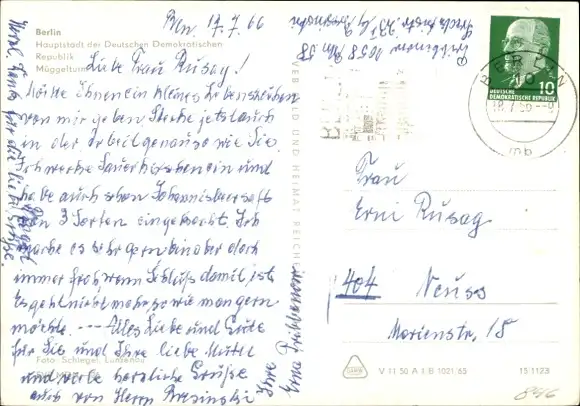 Berlin
Hauptstadt der Deutschen Demokratischen
Republik
Müggelturm
Bln. 17.7.66
Liebe Frau Rusag!
Möchte Ihnen ein kleines Lebenszeichen
von mir geben Stecke jetzt auch
in der Arbeit genauso wie Sie.
Ich wecke Sauerkirschen ein und
habe auch schon Johannisbeersaft
von 3 Sorten eingekocht. Ich
mache es sehr gern bin aber doch
immer froh, wenn Schluß damit ist
Es geht nicht mehr so wie man gern
möchte. --- Alles Liebe und Gute
für Sie und Ihre liebe Mutter
und viele herzliche Grüße
auch von Herrn Bresinski
Ihre
Herzl. Dank für die lieben Grüße.
1058 Bln 58
VEB BILD UND HEIMAT REICHENBACH
BERLIN
18.7.66
mb
10
DEUTSCHE
DEMOKRATISCHE REPUBLIK
Frau
Erni Rusag
404 Neuss
Marienstr. 18
Foto: Schlegel, Luckenau
V 11 50 A 1 B 1021/65
15 1123
846